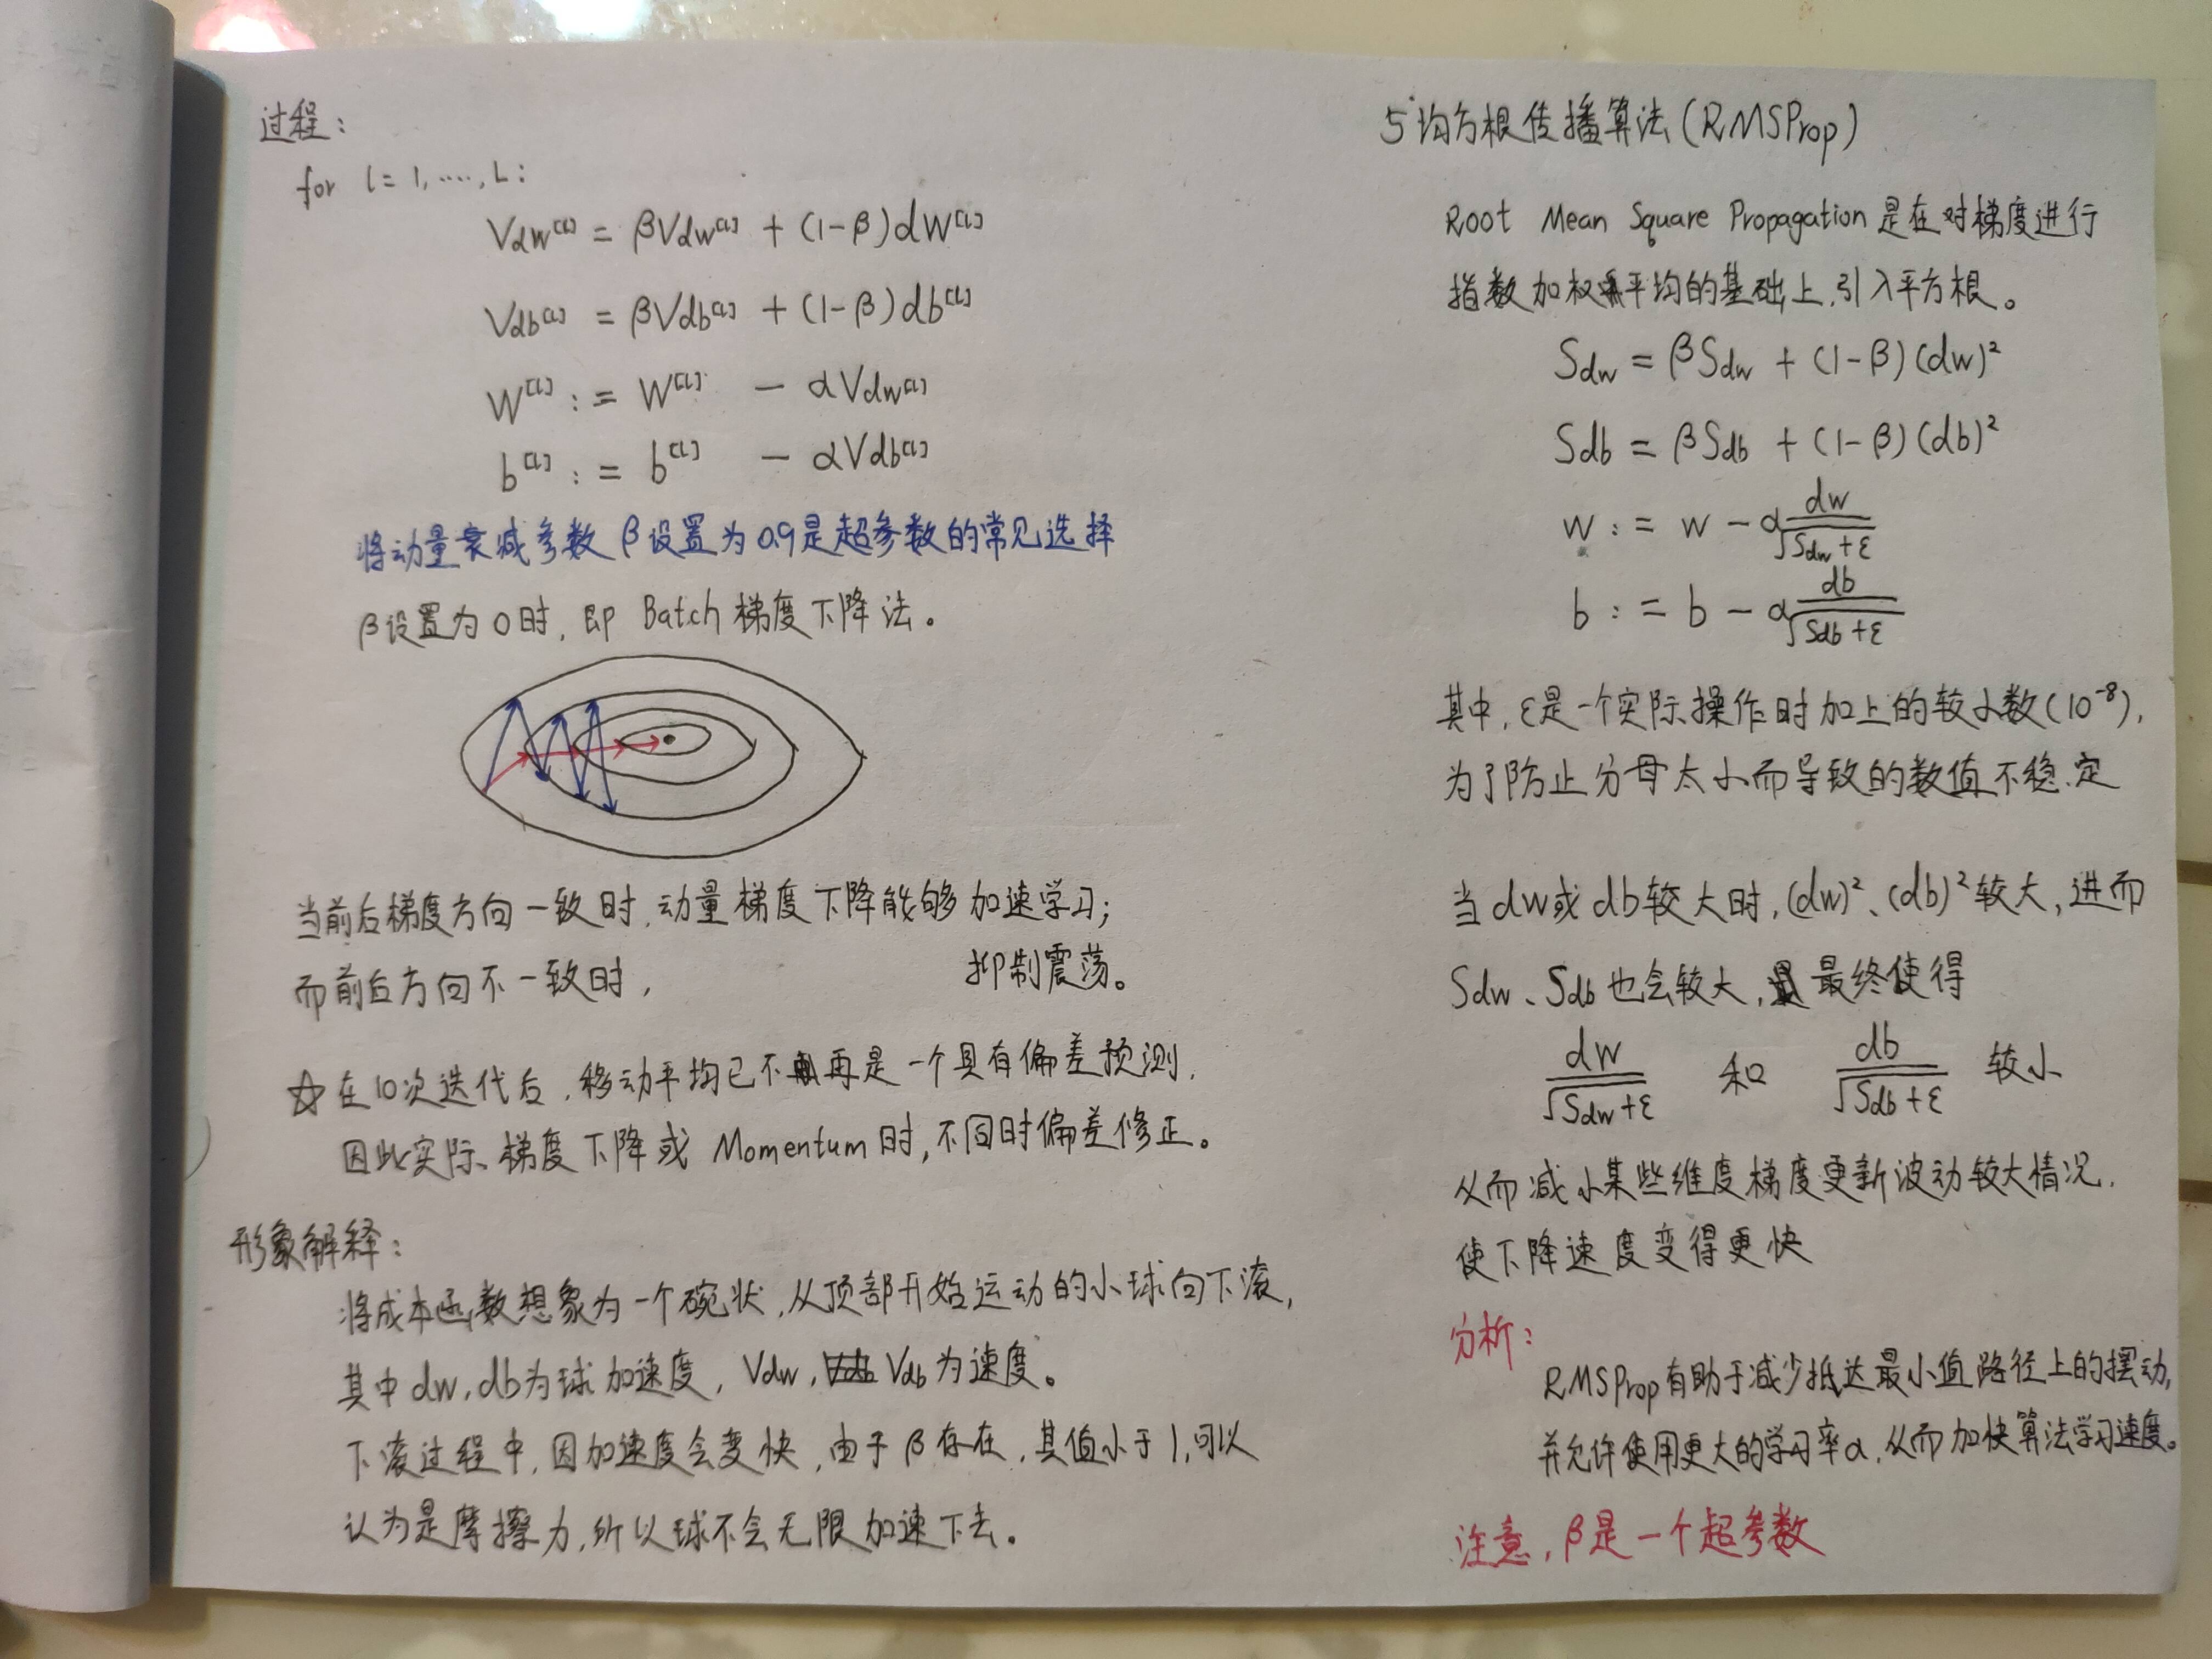 过程：
for l = 1, ...., L:
Vdw[l] = βVdw[l] + (1-β)dW[l]
Vdb[l] = βVdb[l] + (1-β)db[l]
W[l] := W[l] - αVdw[l]
b[l] := b[l] - αVdb[l]
将动量衰减参数 β 设置为 0.9 是超参数的常见选择
β设置为 0 时, 即 Batch 梯度下降法。
当前后梯度方向一致时, 动量梯度下降能够加速学习;
而前后方向不一致时, 抑制震荡。
☆ 在10次迭代后, 移动平均已不再是一个具有偏差预测,
因此实际、梯度下降或 Momentum 时, 不同时偏差修正。
形象解释：
将成本函数想象为一个碗状, 从顶部开始运动的小球向下滚,
其中 dw, db为球加速度, Vdw, Vdb 为速度。
下滚过程中, 因加速度会变快, 由于 β 存在, 其值小于 1, 可以
认为是摩擦力, 所以球不会无限加速下去。
5 均方根传播算法 (RMSProp)
Root Mean Square Propagation 是在对梯度进行
指数加权平均的基础上, 引入平方根。
Sdw = βSdw + (1-β)(dw)²
Sdb = βSdb + (1-β)(db)²
w := w - α dw/√(Sdw+ε)
b := b - α db/√(Sdb+ε)
其中, ε是一个实际操作时加上的较小数(10⁻⁸),
为了防止分母太小而导致的数值不稳定
当 dw或 db较大时, (dw)²、(db)²较大, 进而
Sdw、Sdb 也会较大, 最终使得
dw/√(Sdw+ε) 和 db/√(Sdb+ε) 较小
从而减小某些维度梯度更新波动较大情况,
使下降速度变得更快
分析：
RMSProp有助于减少抵达最小值路径上的摆动,
并允许使用更大的学习率α, 从而加快算法学习速度。
注意, β是一个超参数